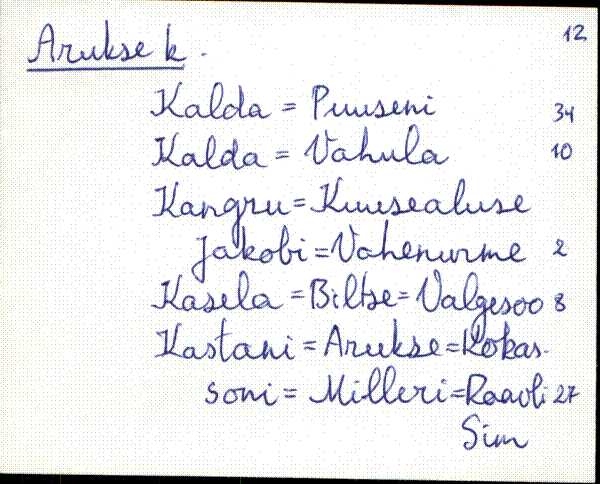 12
Arukse k.
Kalda = Puuseni 34
Kalda = Vahula 10
Kangru = Kuusealuse
Jakobi = Vahenurme 2
Kasela = Biltse = Valgesoo 8
Kastani = Arukse = Kokas-
soni = Milleri = Raavli 27
Sim